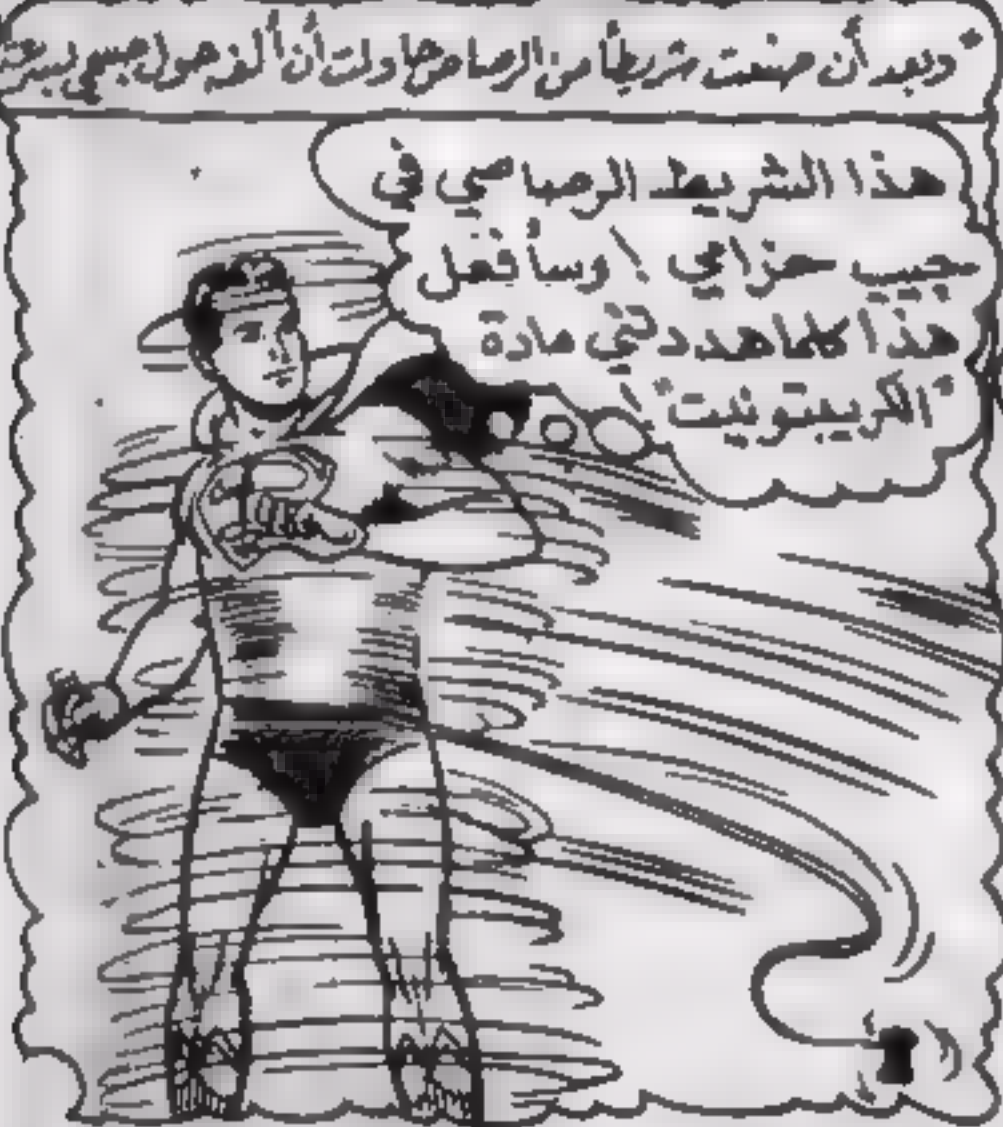 "وبعد أن صنعت شريطاً من الرصاص حاولت أن ألفه حول جسمي بسرعة
هذا الشريط الرصاصي في
جيب حزامي ! وسأفعل
هذا كلما هددتني مادة
"الكريبتونيت" !